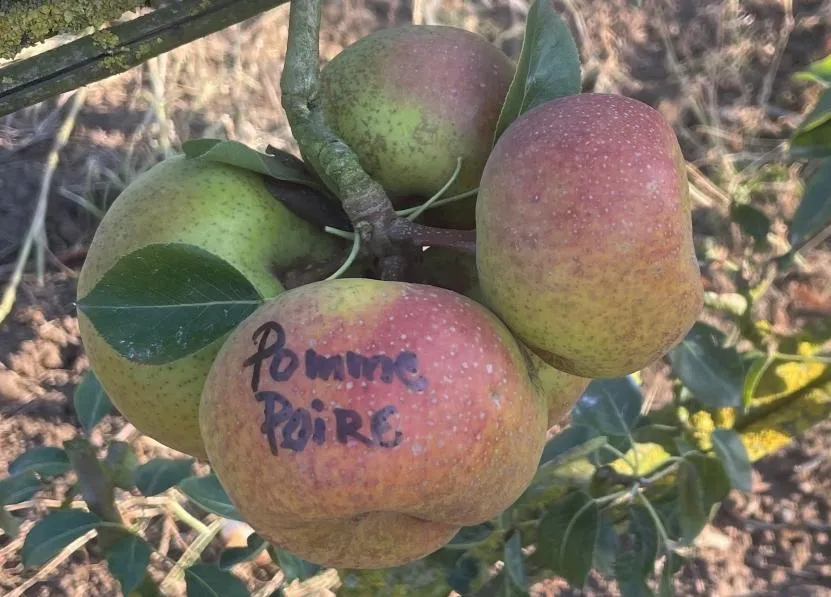 Pomme
PoiRe